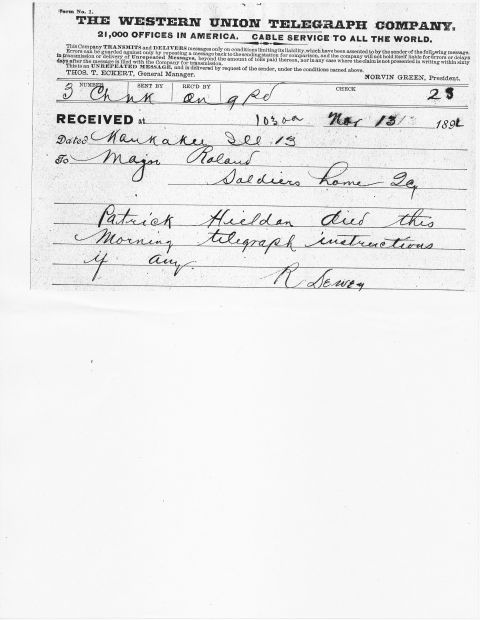 Form No. 1.
THE WESTERN UNION TELEGRAPH COMPANY.
21,000 OFFICES IN AMERICA. CABLE SERVICE TO ALL THE WORLD.
This Company TRANSMITS and DELIVERS messages only on conditions limiting its liability, which have been assented to by the sender of the following message.
Errors can be guarded against only by repeating a message back to the sending station for comparison, and the company will not hold itself liable for errors or delays
in transmission or delivery of Unrepeated Messages, beyond the amount of tolls paid thereon, nor in any case where the claim is not presented in writing within sixty
days after the message is filed with the Company for transmission.
This is an UNREPEATED MESSAGE, and is delivered by request of the sender, under the conditions named above.
THOS. T. ECKERT, General Manager. NORVIN GREEN, President.
NUMBER SENT BY REC'D BY CHECK
3 Ch nk an 9 Pd 23
RECEIVED at 1030a Nov 13 1891
Dated Kankakee Ill 13
To Major Roland
Soldiers home Qy
Patrick Hieldan died this
Morning telegraph instructions
if any.
R Dewey